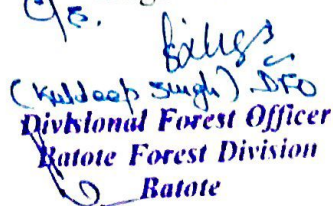 C/S.
(Kuldeep Singh) DFO
Divisional Forest Officer
Batote Forest Division
Batote